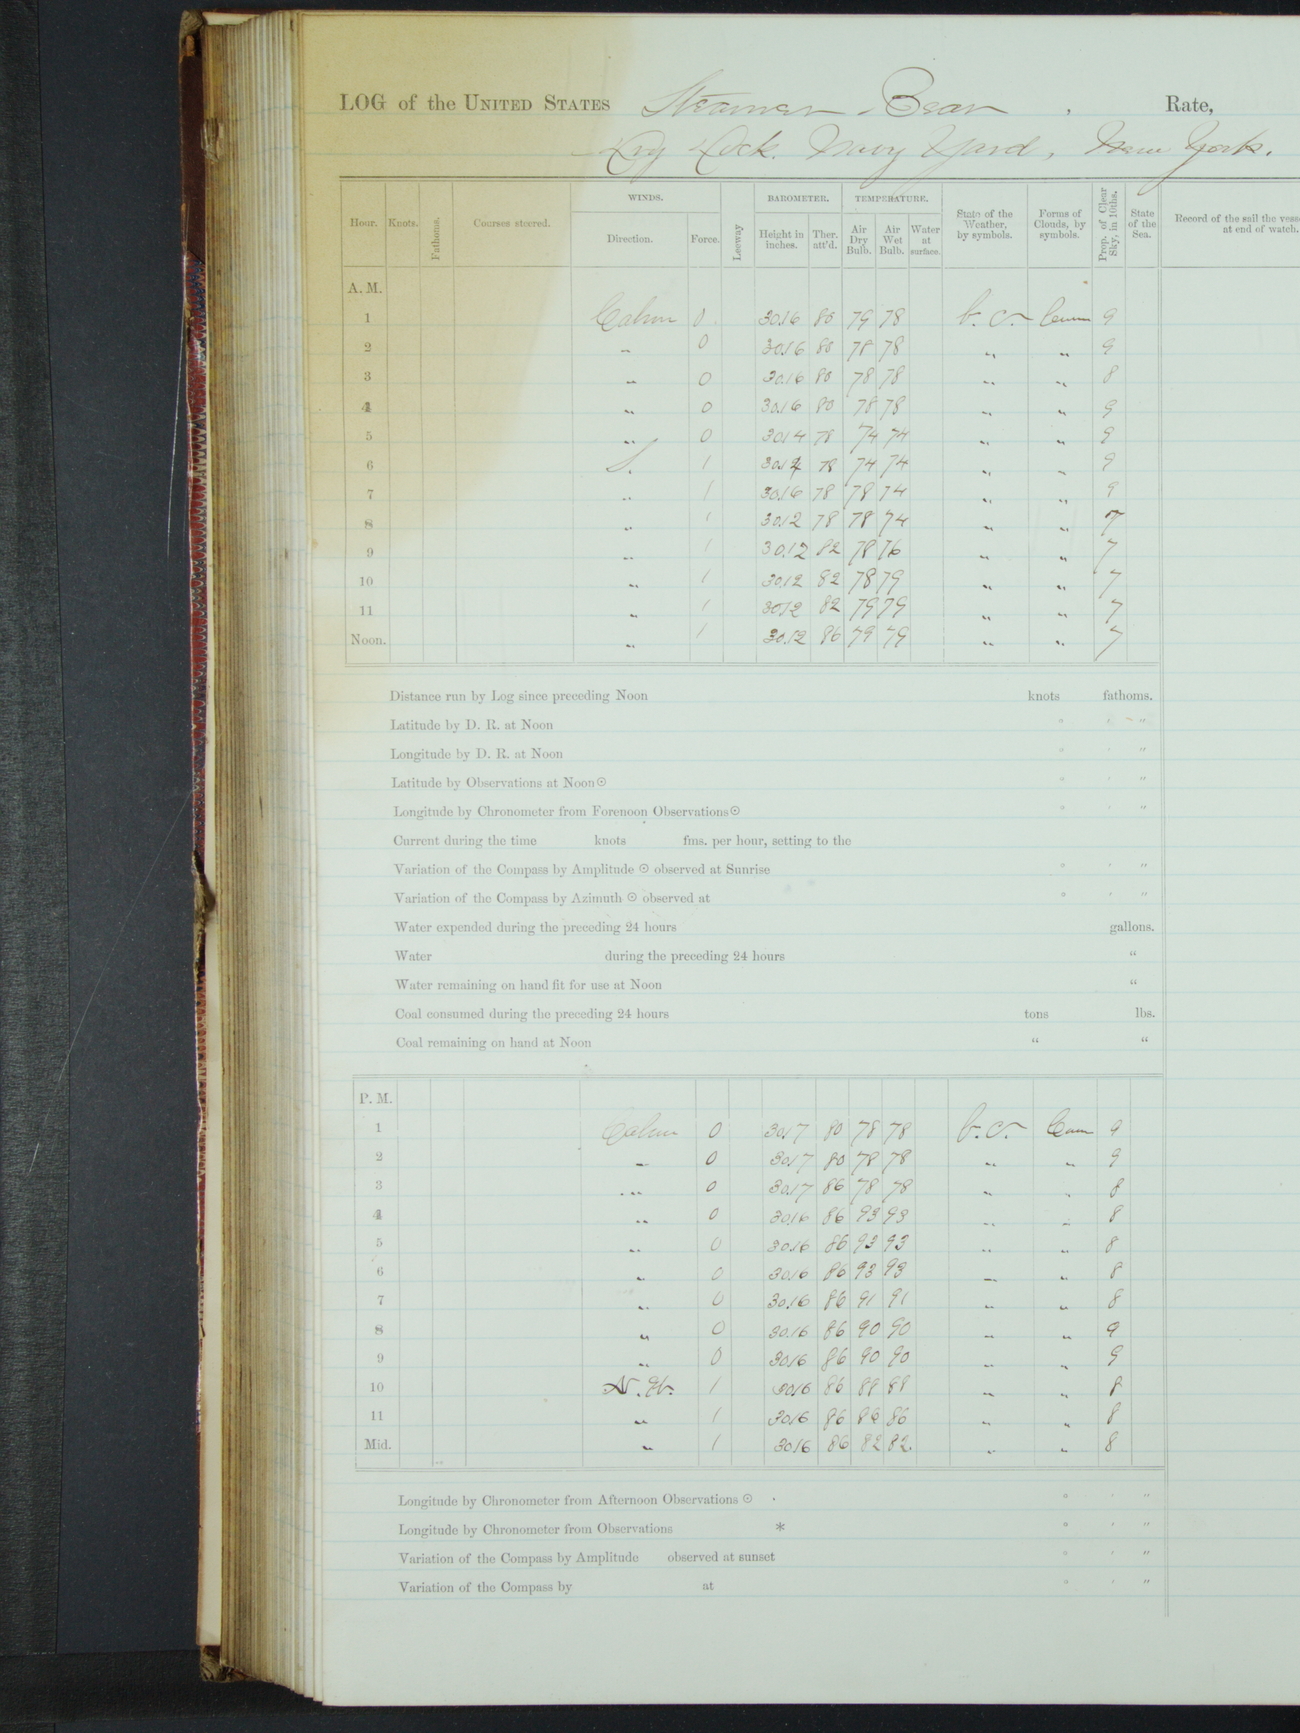 LOG of the UNITED STATES Steamer Bear , Rate,
Dry Dock. Navy Yard, New York.
WINDS. BAROMETER. TEMPERATURE.
Hour. Knots. Fathoms. Courses steered. Direction. Force. Leeway Height in inches. Ther. att'd. Air Dry Bulb. Air Wet Bulb. Water at surface. State of the Weather, by symbols. Forms of Clouds, by symbols. Prop. of Clear Sky, in 10ths. State of the Sea. Record of the sail the vess at end of watch.
A. M.
1 Calm 0 30.16 80 79 78 b.c. Cum 9
2 " 0 30.16 80 78 78 " " 9
3 " 0 30.16 80 78 78 " " 8
4 " 0 30.16 80 78 78 " " 9
5 " 0 30.14 78 74 74 " " 9
6 S. 1 30.14 78 74 74 " " 9
7 " 1 30.16 78 78 74 " " 9
8 " 1 30.12 78 78 74 " " 7
9 " 1 30.12 82 78 76 " " 7
10 " 1 30.12 82 78 79 " " 7
11 " 1 30.12 82 79 79 " " 7
Noon. " 1 30.12 86 79 79 " " 7
Distance run by Log since preceding Noon knots fathoms.
Latitude by D. R. at Noon ° ' "
Longitude by D. R. at Noon ° ' "
Latitude by Observations at Noon ☉ ° ' "
Longitude by Chronometer from Forenoon Observations ☉ ° ' "
Current during the time knots fms. per hour, setting to the
Variation of the Compass by Amplitude ☉ observed at Sunrise ° ' "
Variation of the Compass by Azimuth ☉ observed at ° ' "
Water expended during the preceding 24 hours gallons.
Water during the preceding 24 hours "
Water remaining on hand fit for use at Noon "
Coal consumed during the preceding 24 hours tons lbs.
Coal remaining on hand at Noon " "
P. M.
1 Calm 0 30.17 80 78 78 b.c. Cum 9
2 " 0 30.17 80 78 78 " " 9
3 " 0 30.17 86 78 78 " " 8
4 " 0 30.16 86 93 93 " " 8
5 " 0 30.16 86 93 93 " " 8
6 " 0 30.16 86 93 93 " " 8
7 " 0 30.16 86 91 91 " " 8
8 " 0 30.16 86 90 90 " " 9
9 " 0 30.16 86 90 90 " " 9
10 N. W. 1 30.16 86 88 88 " " 8
11 " 1 30.16 86 86 86 " " 8
Mid. " 1 30.16 86 82 82. " " 8
Longitude by Chronometer from Afternoon Observations ☉ ° ' "
Longitude by Chronometer from Observations * ° ' "
Variation of the Compass by Amplitude observed at sunset ° ' "
Variation of the Compass by at ° ' "